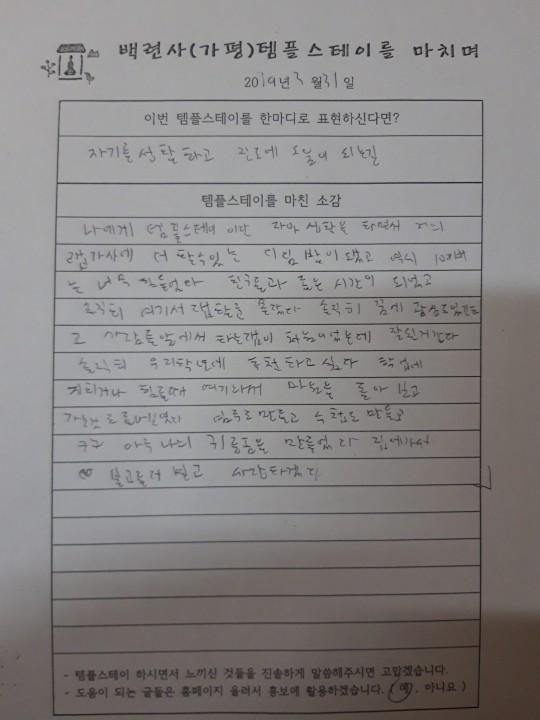 백련사(가평)템플스테이를 마치며
2019년 3월31일
이번 템플스테이를 한마디로 표현하신다면?
자기를 성찰하고 진로에 도움이 되는길
템플스테이를 마친 소감
나에게 템플스테이 이란 자아 성찰을 하면서 저의
랩가사에 더 탈수있는 디딤 밤이 됐고 역시 108배
는 너무 힘들었다 친구들과 좋은 시간이 되었고
솔직히 여기서 랩할줄 몰랐다 솔직히
그 사람들앞에서 하는랩이 처음이었는데 잘된거같다
솔직히 우리학년에 추천하고 싶다 학업에
지치거나 힘들때 여기와서 마음을 돌아 보고
염주도 만들고 수첩도 만들고
아주 나의 만들었다 집에가서
보고 사람하겠다
- 템플스테이 하시면서 느끼신 것들을 진솔하게 말씀해주시면 고맙겠습니다.
- 도움이 되는 글들은 홈페이지 올려서 홍보에 활용하겠습니다. ( 예, 아니요 )